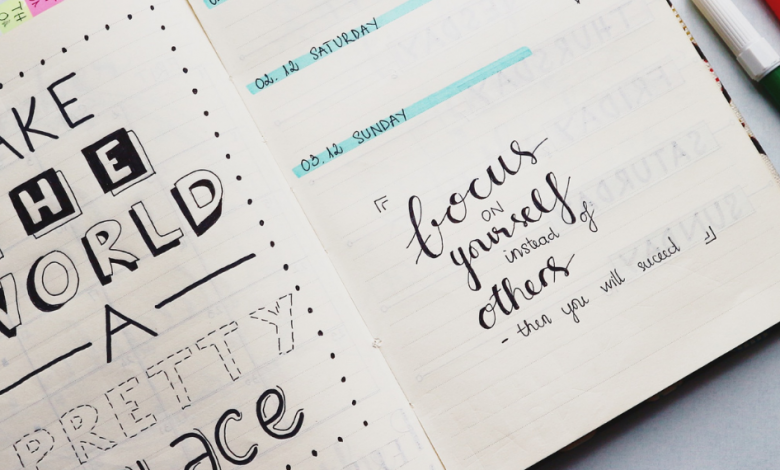 AKE
THE
WORLD
A
PRETTY
place
02. 12 SATURDAY
03. 12 SUNDAY
focus
ON
yourself
instead of
others
- then you will suceed